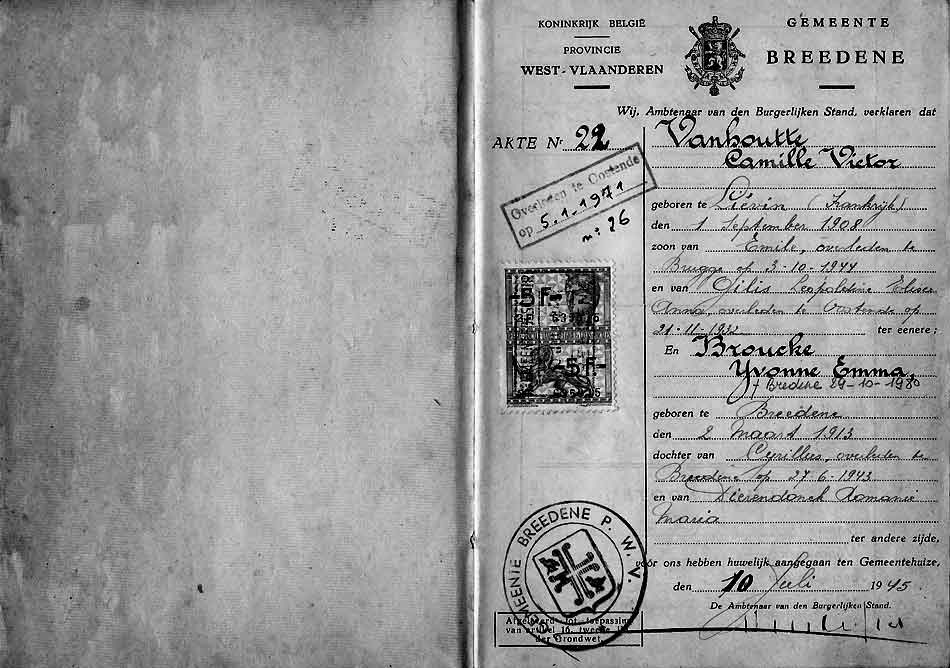 KONINKRIJK BELGIË
PROVINCIE
WEST-VLAANDEREN
GEMEENTE
BREEDENE
Wij, Ambtenaar van den Burgerlijken Stand, verklaren dat
AKTE Nr 22
Vanhoutte
Camille Victor
Overleden te Oostende
op 5.1.1971
nr 26
geboren te Liévin (Frankrijk)
den 1 September 1908
zoon van Emile, overleden te
Brugge op 3-10-1944
en van Gilis Leopoldine Elisa
Anna, overleden te Oostende op
21-11-1932 ter eenere;
En Broucke
Yvonne Emma,
+ Bredene 29-10-1980
geboren te Breedene
den 2 Maart 1913
dochter van Cyrillus, overleden te
Breedene op 27-6-1943
en van Dierendonck Romanie
Maria
ter andere zijde,
vóór ons hebben huwelijk aangegaan ten Gemeentehuize,
den 10 Juli 1945.
De Ambtenaar van den Burgerlijken Stand.
5 Fr
5 Fr
GEMEENTE BREEDENE P. W. V.
Afgeleverd tot toepassing
van artikel 16, tweede lid
der Grondwet.